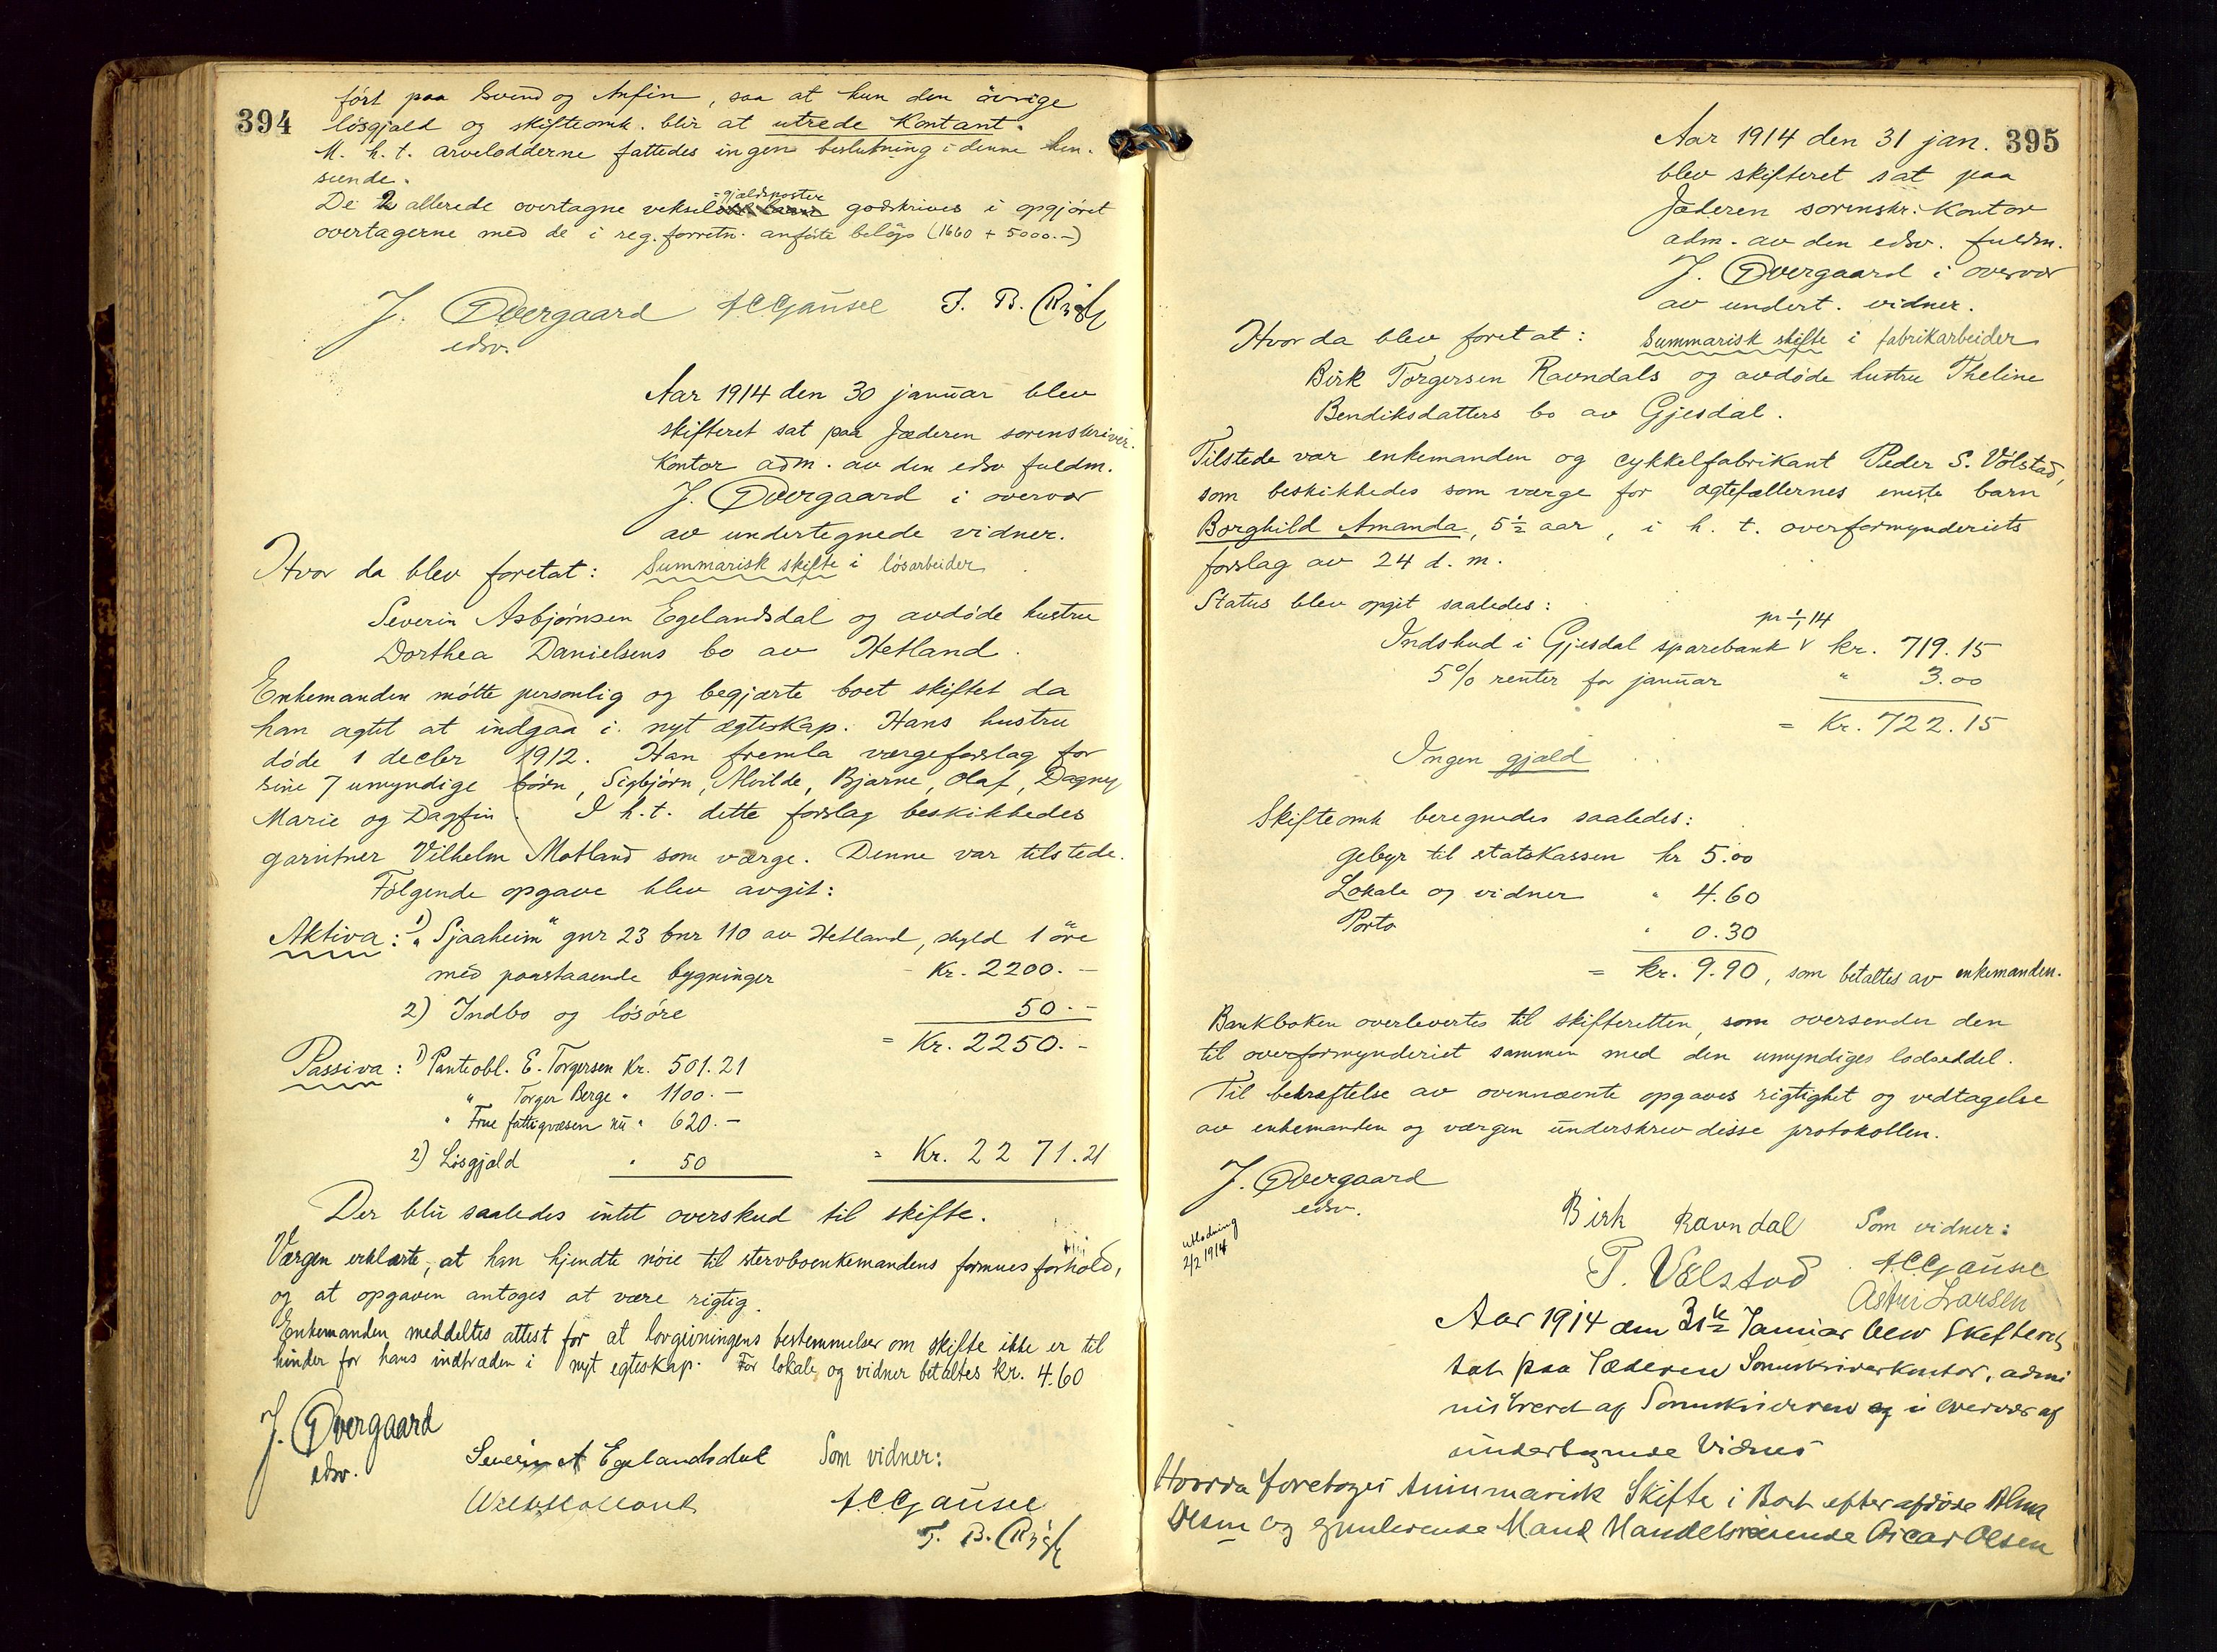 394
ført paa Svend og Anfin, saa at kun den øvrige
løsgjæld og skifteomk. blir at utrede kontant.
M. h. t. arvelodderne fattedes ingen beslutning i denne hen-
seende.
=gjældsposter
De 2 allerede overtagne veksel godskrives i opgjøret
overtagerne med de i reg. forretn. anførte beløp (1660 + 5000.-)
J. Øvergaard ACGausel T. B.
edsv.
Aar 1914 den 30 januar blev
skifteret sat paa Jæderen sorenskriver-
kontor adm. av den edsv fuldm.
J. Øvergaard i overvær
av undertegnede vidner.
Hvor da blev foretat: Summarisk skifte i løsarbeider
Severin Asbjørnsen Egelandsdal og avdøde hustru
Dorthea Danielsens bo av Hetland.
Enkemanden møtte personlig og begjærte boet skiftet da
han agtet at indgaa i nyt ægteskap. Hans hustru
døde 1 decbr 1912. Han fremla værgeforslag for
sine 7 umyndige børn, Sigbjørn, Alvilde, Bjarne, Olaf, Dagny
Marie og Dagfin. I h. t. dette forslag beskikkedes
gartner Vilhelm Motland som værge. Denne var tilstede.
Følgende opgave blev avgit:
Aktiva: 1) "Sjaaheim" gnr 23 bnr 110 av Hetland, skyld 1 øre
med paastaaende bygninger - Kr. 2200.-
2) Indbo og løsøre 50.-
= Kr. 2250.-
Passiva: 1) Panteobl. E. Torgersen Kr. 501.21
" Torger Berge " 1100.-
" Frue fattigvæsen nu " 620.-
2) Løsgjæld " 50 = Kr. 2271.21
Der blir saaledes intet overskud til skifte.
Værgen erklærte, at han kjendte nøie til stervboenkemandens formuesforhold,
og at opgaven antoges at være rigtig.
Enkemanden meddeltes attest for at lovgivningens bestemmelser om skifte ikke er til
hinder for hans indtræden i nyt egteskap. For lokale og vidner betaltes kr. 4.60
J. Øvergaard
edsv.
Severin A Egelandsdal Som vidner:
ACGausel
T. B.
395
Aar 1914 den 31 jan.
blev skifteret sat paa
Jæderen sorenskr. kontor
adm. av den edsv. fuldm.
J. Øvergaard i overvær
av undert. vidner.
Hvor da blev foretat: Summarisk skifte i fabrikarbeider
Birk Torgersen Ravndals og avdøde hustru Theline
Bendiksdatters bo av Gjesdal.
Tilstede var enkemanden og cykkelfabrikant Peder S. Vølstad,
som beskikkedes som værge for ægtefællernes eneste barn
Borghild Amanda, 5 1/2 aar, i h. t. overformynderiets
forslag av 24 d. m.
Status blev opgit saaledes:
pr 1/1 14
Indskud i Gjesdal sparebank v kr. 719.15
5% renter for januar " 3.00
= Kr. 722.15
Ingen gjæld
Skifteomk beregnedes saaledes:
Gebyr til statskassen kr 5.00
Lokale og vidner " 4.60
Porto " 0.30
= kr. 9.90, som betaltes av enkemanden.
Bankboken overlevertes til skifteretten, som oversender den
til overformynderiet sammen med den umyndiges lodseddel.
Til bekræftelse av ovennævnte opgaves rigtighet og vedtagelse
av enkemanden og værgen underskrev disse protokollen.
J. Øvergaard
edsv.
utlodning
2/2 1914
Birk Ravndal Som vidner:
P. Vølstad ACGausel
Astri Larsen
Aar 1914 den 31te Januar blev Skifteret
sat paa Jæderens Sorenskriverkontor, admi
nistrerd af Sorenskriveren og i Overvær af
undertegnede Vidner
Hvorda foretoges summarisk Skifte i Boet efter afdøde Alma
Olsen og gjenlevende Mand Handelsreisende Oscar Olsen